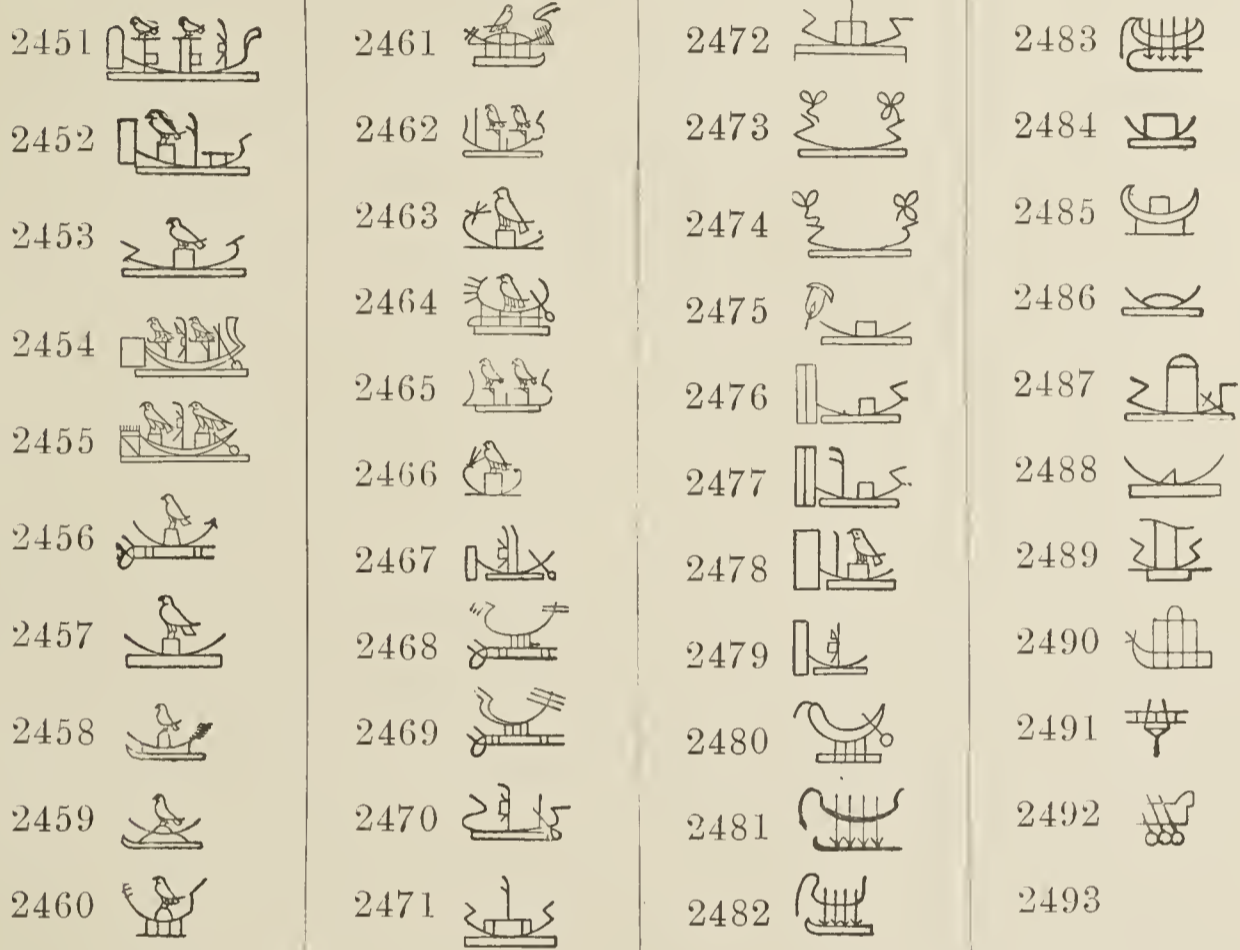 2451
2452
2453
2454
2455
2456
2457
2458
2459
2460
2461
2462
2463
2464
2465
2466
2467
2468
2469
2470
2471
2472
2473
2474
2475
2476
2477
2478
2479
2480
2481
2482
2483
2484
2485
2486
2487
2488
2489
2490
2491
2492
2493